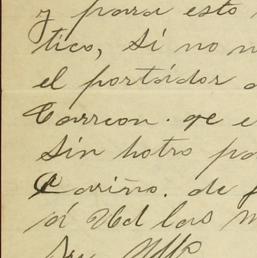 y para esto
tico, si no
el portador
Carreon. qe e
sin hotro pa
Cariño. de
á Ud las m